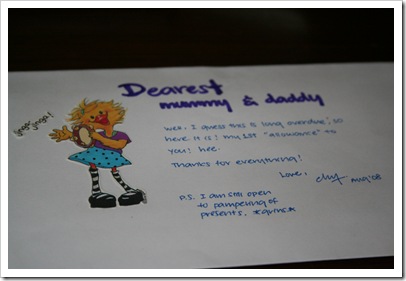 Dearest
mummy & daddy
jinga jinga!
well, I guess this is long overdue, so
here it is! my 1st "allowance" to
you! hee.
Thanks for everything!
Love,
Aug '08
P.S. I am still open
to pampering of
presents. *grins*